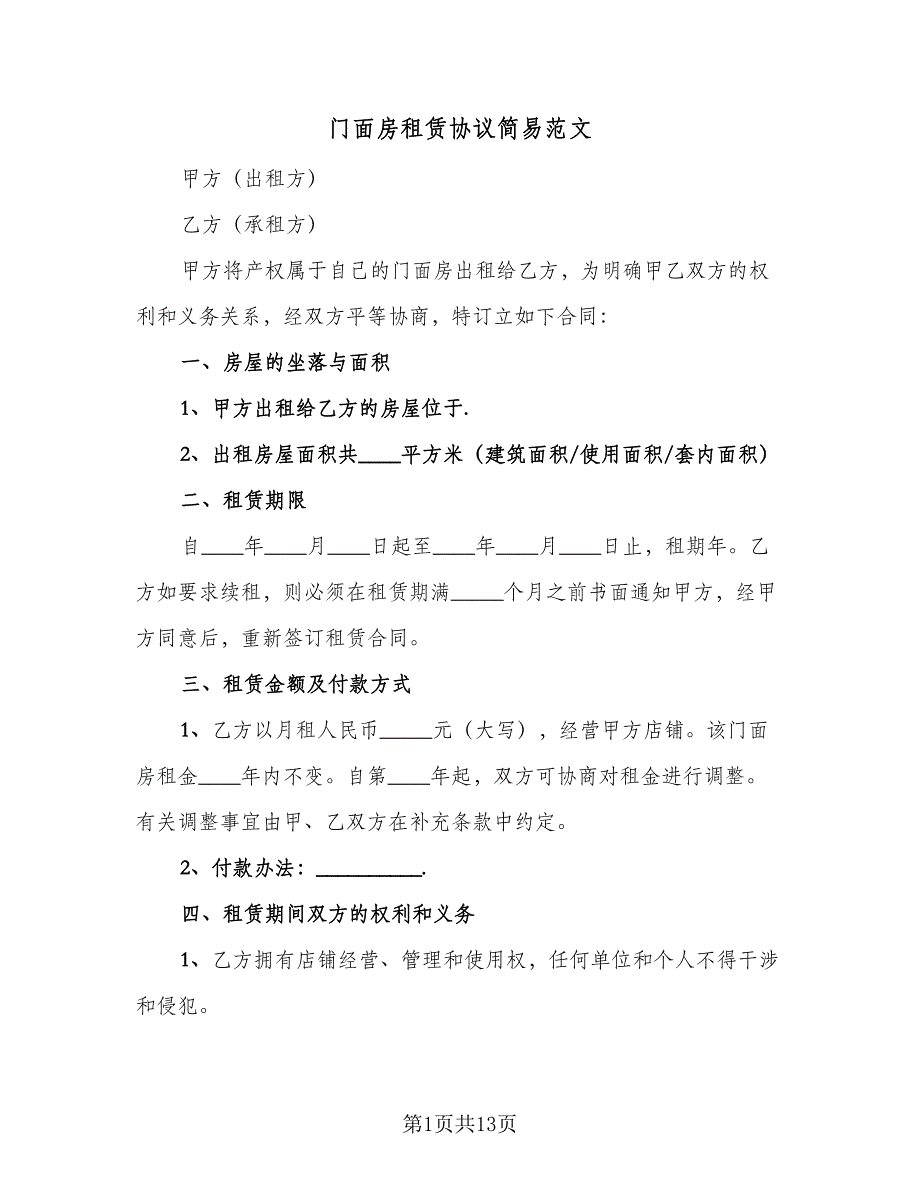 门面房租赁协议简易范文
甲方（出租方）
乙方（承租方）
甲方将产权属于自己的门面房出租给乙方，为明确甲乙双方的权
利和义务关系，经双方平等协商，特订立如下合同：
一、房屋的坐落与面积
1、甲方出租给乙方的房屋位于.
2、出租房屋面积共____平方米（建筑面积/使用面积/套内面积）
二、租赁期限
自____年____月____日起至____年____月____日止，租期年。乙
方如要求续租，则必须在租赁期满_____个月之前书面通知甲方，经甲
方同意后，重新签订租赁合同。
三、租赁金额及付款方式
1、乙方以月租人民币_____元（大写），经营甲方店铺。该门面
房租金____年内不变。自第____年起，双方可协商对租金进行调整。
有关调整事宜由甲、乙双方在补充条款中约定。
2、付款办法：__________.
四、租赁期间双方的权利和义务
1、乙方拥有店铺经营、管理和使用权，任何单位和个人不得干涉
和侵犯。
第1页共13页